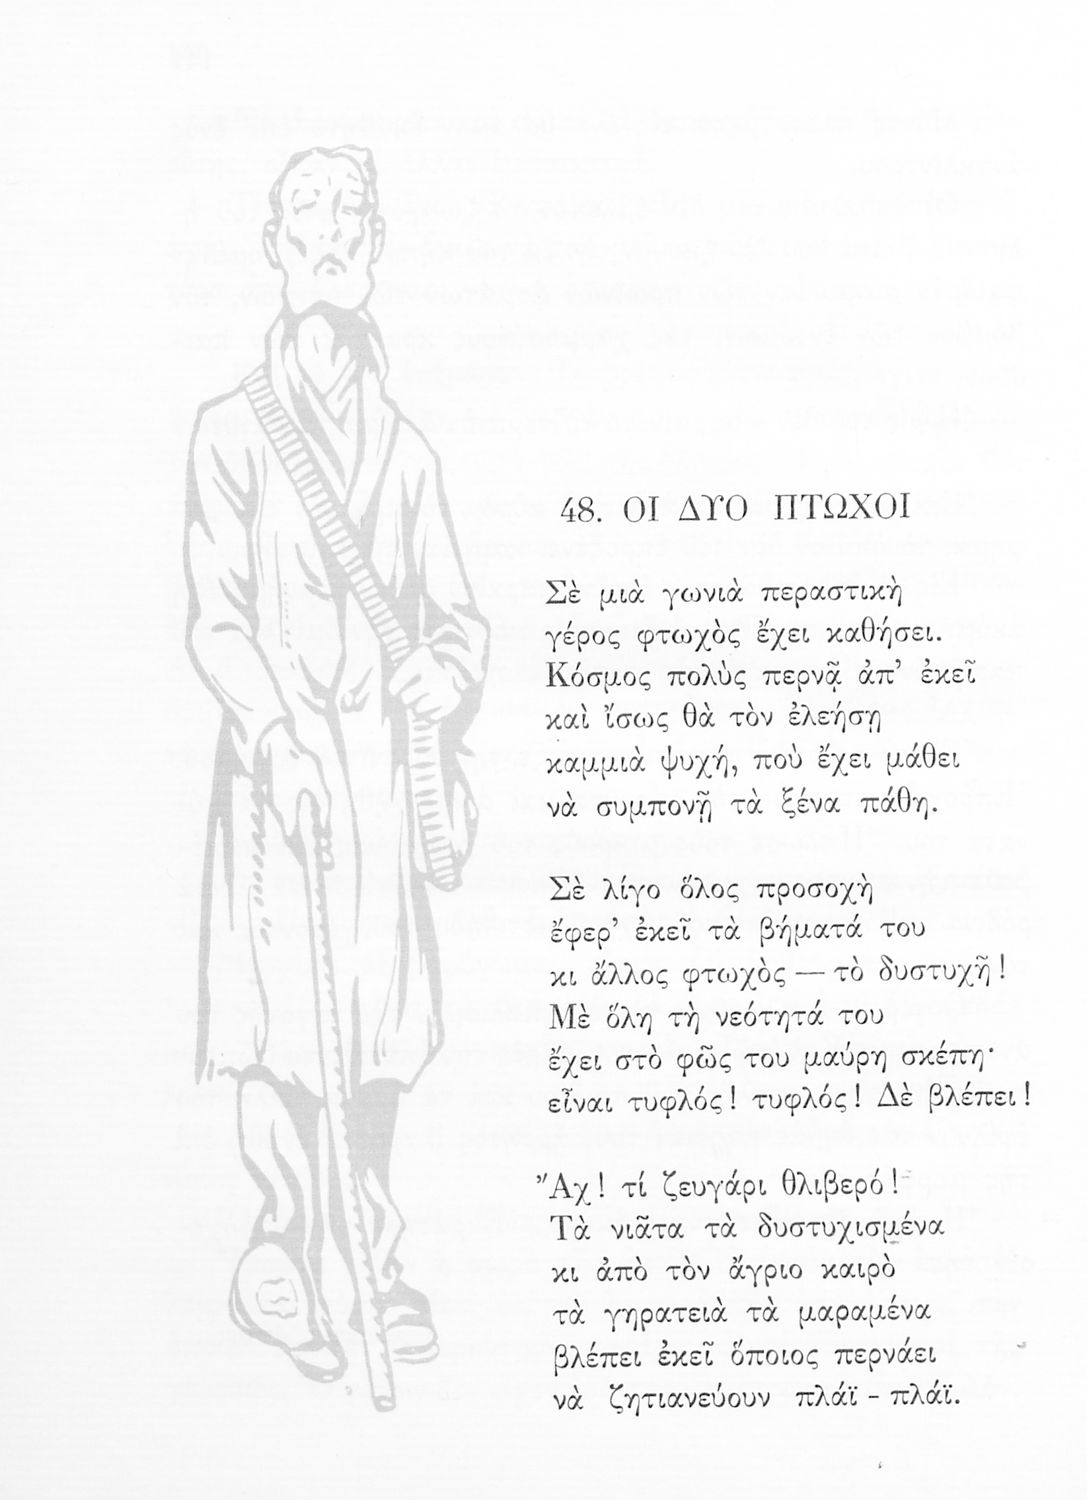 48. ΟΙ ΔΥΟ ΠΤΩΧΟΙ
Σὲ μιὰ γωνιὰ περαστικὴ
γέρος φτωχὸς ἔχει καθήσει.
Κόσμος πολὺς περνᾷ ἀπ’ ἐκεῖ
καὶ ἴσως θὰ τὸν ἐλεήσῃ
καμμιὰ ψυχή, ποὺ ἔχει μάθει
νὰ συμπονῇ τὰ ξένα πάθη.
Σὲ λίγο ὅλος προσοχὴ
ἔφερ’ ἐκεῖ τὰ βήματά του
κι ἄλλος φτωχὸς — τὸ δυστυχῆ!
Μὲ ὅλη τὴ νεότητά του
ἔχει στὸ φῶς του μαύρη σκέπη·
εἶναι τυφλός! τυφλός! Δὲ βλέπει!
Ἄχ! τί ζευγάρι θλιβερό!
Τὰ νιᾶτα τὰ δυστυχισμένα
κι ἀπὸ τὸν ἄγριο καιρὸ
τὰ γηρατειὰ τὰ μαραμένα
βλέπει ἐκεῖ ὅποιος περνάει
νὰ ζητιανεύουν πλάϊ - πλάϊ.